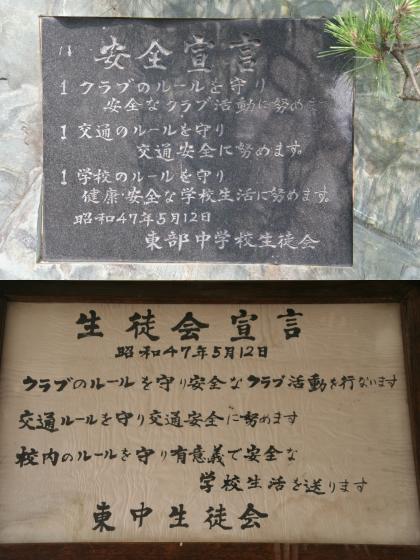 安全宣言
1 クラブのルールを守り
安全なクラブ活動に努めます
1 交通のルールを守り
交通安全に努めます。
1 学校のルールを守り
健康・安全な学校生活に努めます。
昭和47年5月12日
東部中学校生徒会
生徒会宣言
昭和47年5月12日
クラブのルールを守り安全なクラブ活動を行ないます
交通ルールを守り交通安全に努めます
校内のルールを守り有意義で安全な
学校生活を送ります
東中生徒会